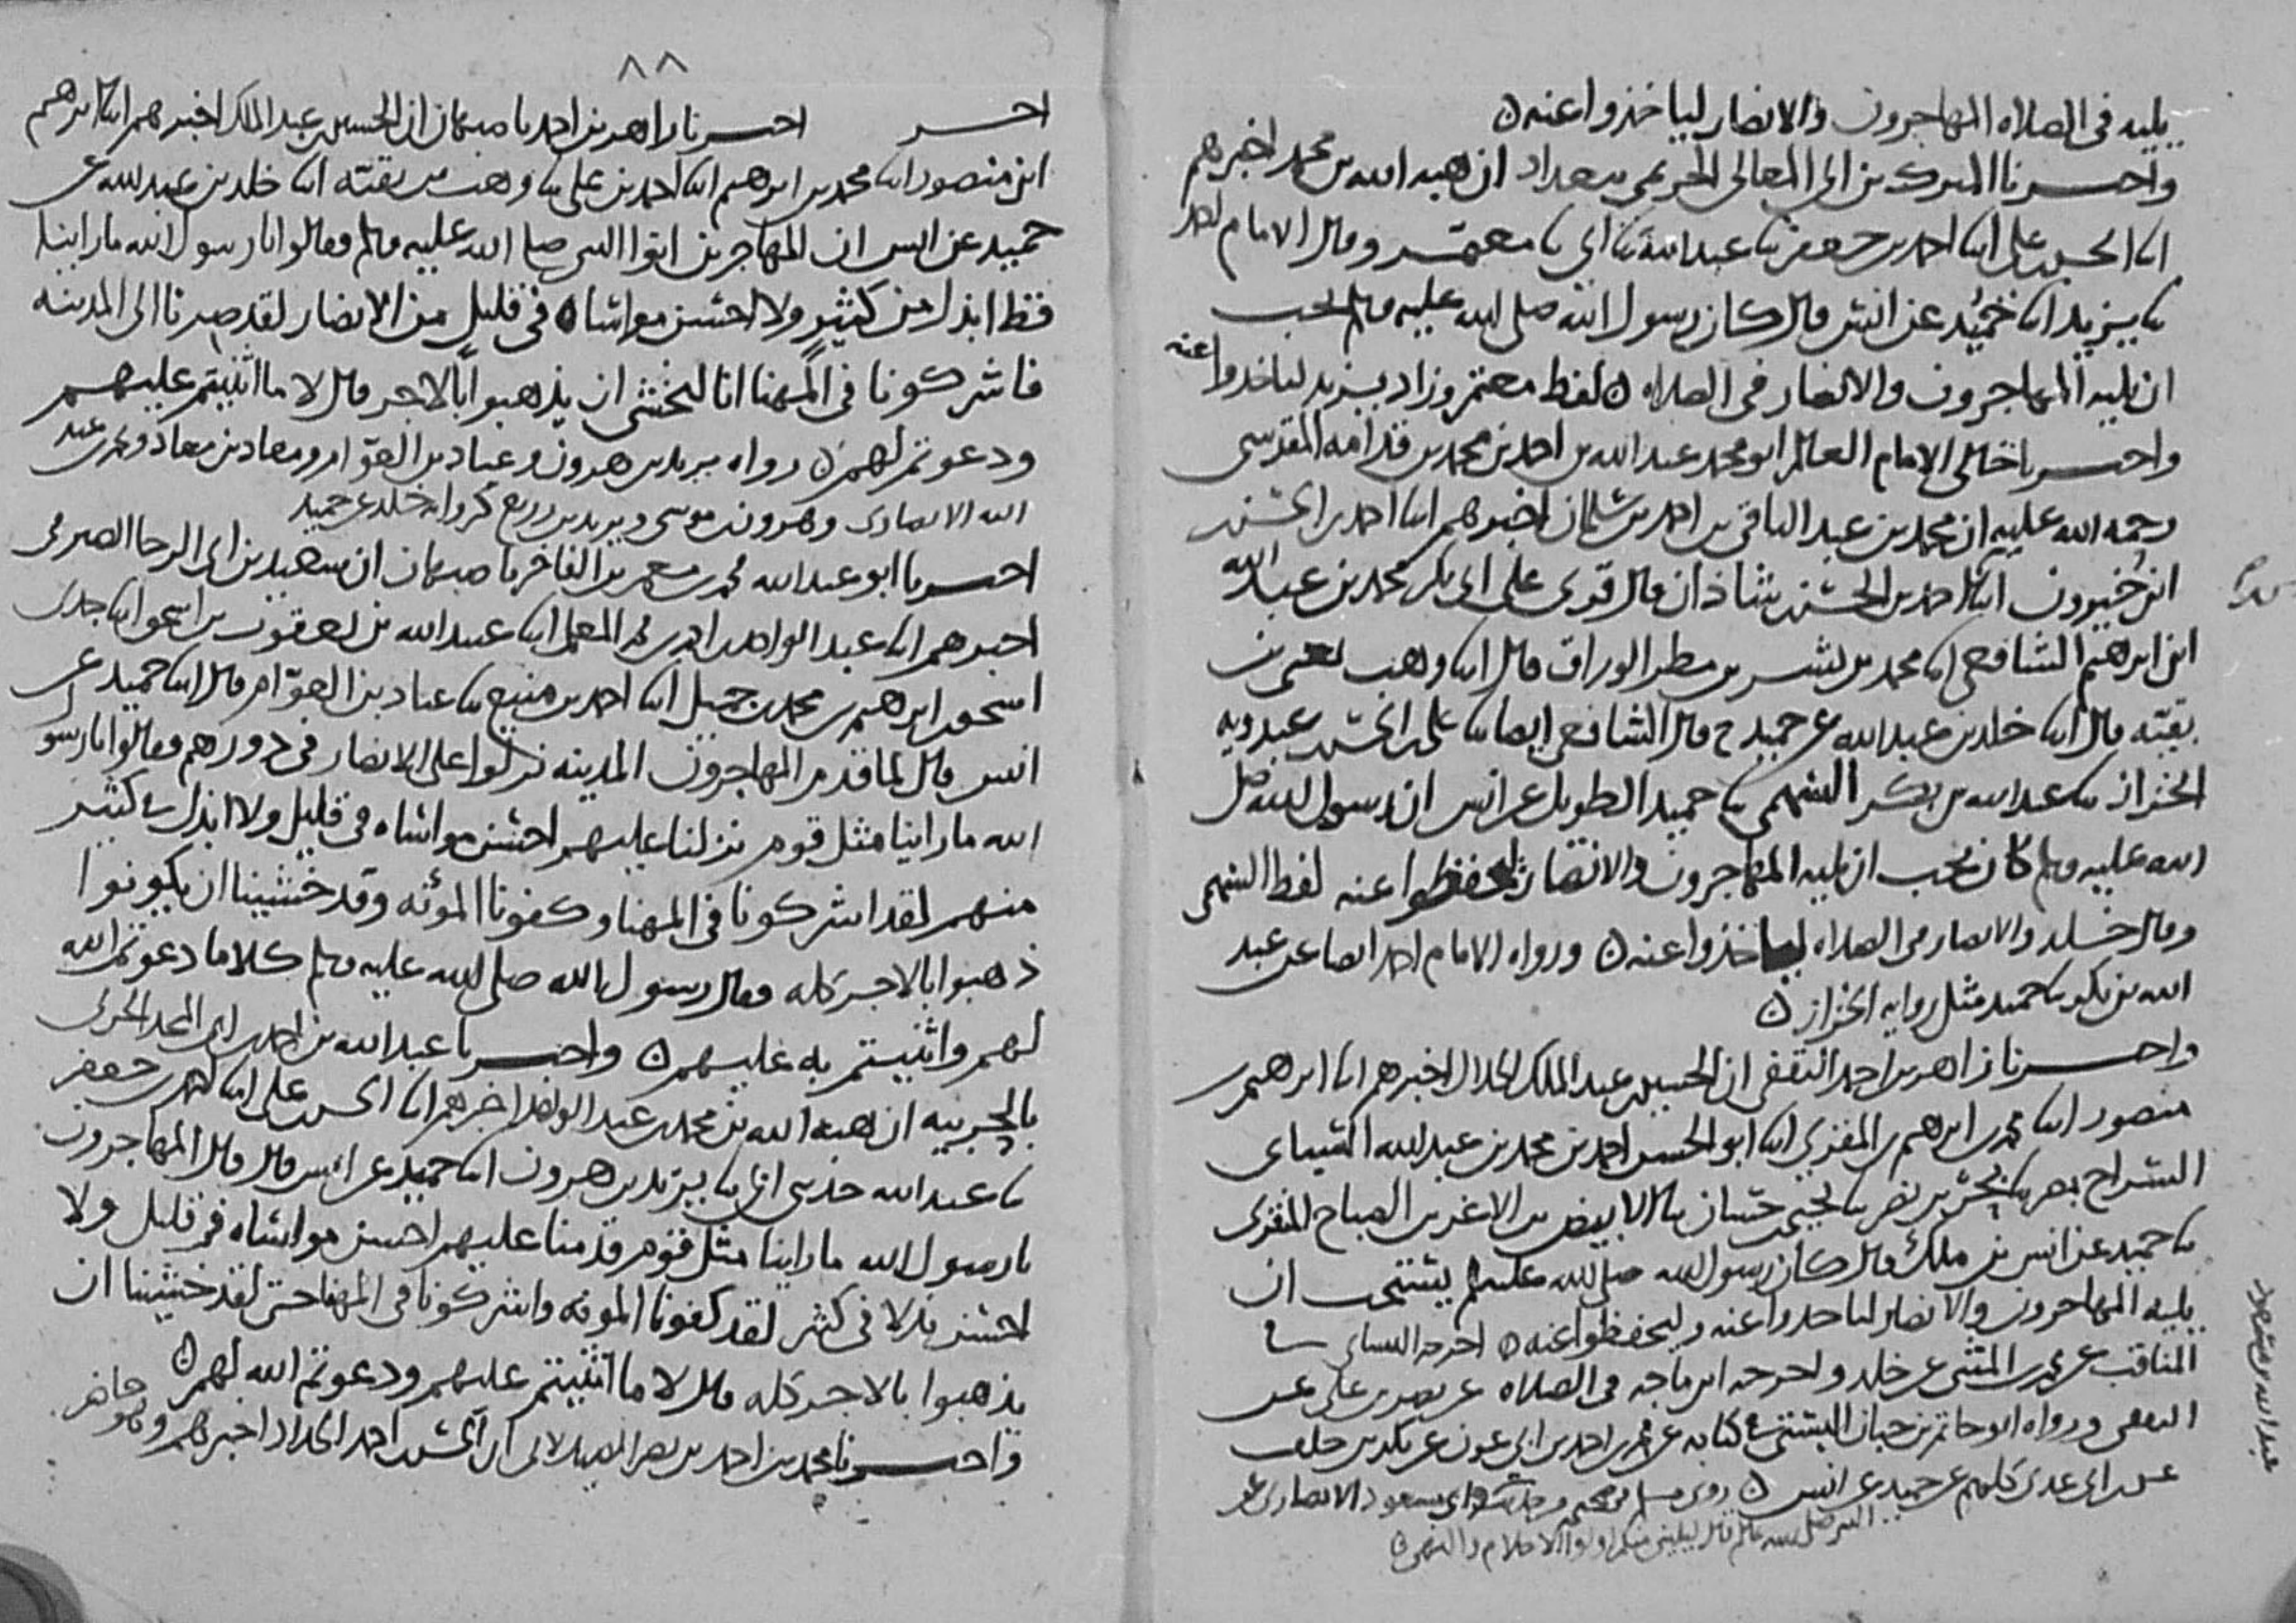 يليه في الصلاه المهاجرون والانصار لياخذوا عنه ه
واخبرنا المبرك بن ابي المعالي الحريمي ببغداد ان هبه الله بن محمد اخبرهم
ابنا الحسن بن علي ابنا احمد بن جعفر ثنا عبد الله ثنا ابي ثنا معتمر وقال الامام احمد
ثنا يزيد ابنا حميد عن انس قال كان رسول الله صلى الله عليه وسلم يحب
ان يليه المهاجرون والانصار في الصلاه ه لفظ معتمر وزاد يزيد لياخذوا عنه
واخبرنا خالي الامام العالم ابو محمد عبد الله بن احمد بن محمد بن قدامه المقدسي
رحمه الله عليه ان محمد بن عبد الباقي بن احمد بن سلمان اخبرهم ابنا احمد بن الحسن
ابن خيرون ابنا احمد بن الحسن بن شاذان قال قرئ على ابي بكر محمد بن عبد الله
ابن ابرهيم الشافعي ثنا محمد بن بشر بن مطر الوراق قال ابنا وهب يعني بن
بقيه قال ابنا خلد بن عبد الله عن حميد ح قال الشافعي ايضا ثنا علي بن الحسن بن عبدويه
الخزاز ثنا عبد الله بن بكر السهمي ثنا حميد الطويل عن انس ان رسول الله صلى
الله عليه وسلم كان يحب ان يليه المهاجرون والانصار ليحفظوا عنه لفظ السهمي
وقال خلد والانصار في الصلاه لياخذوا عنه ه ورواه الامام احمد ايضا عن عبد
الله بن بكر ثنا حميد مثل روايه الخزاز ه
واخبرنا زاهر بن احمد الثقفي ان الحسين بن عبد الملك الخلال اخبرهم ابنا ابرهيم بن
منصور ابنا محمد بن ابرهيم بن المقرئ ابنا ابو الحسن احمد بن محمد بن عبد الله
السراج بمصر ثنا بحر بن نصر ثنا يحيى بن حسان ثنا الابيض بن الاغر بن الصباح المنقري
ثنا حميد عن انس بن ملك قال كان رسول الله صلى الله عليه وسلم يستحب ان
يليه المهاجرون والانصار لياخذوا عنه وليحفظوا عنه ه اخرجه النسائي في
المناقب عن محمد بن المثنى عن خلد واخرجه ابن ماجه في الصلاه عن نصر بن علي عن
الثقفي ورواه ابو حاتم بن حبان البستي في كتابه عن محمد بن احمد بن ابي عون عن بكر بن خلف
عن ابن ابي عدي كلهم عن حميد عن انس ه روى مسلم في صحيحه من حديث ابي مسعود الانصاري عن
النبي صلى الله عليه وسلم قال ليليني منكم اولوا الاحلام والنهى ه
عبد الله بن مسعود
٨٨
اخبر اخبرنا زاهر بن احمد باصبهان ان الحسين بن عبد الملك اخبرهم ابنا ابرهيم
ابن منصور ابنا محمد بن ابرهيم ابنا احمد بن علي ثنا وهب بن بقيه ابنا خلد بن عبد الله عن
حميد عن انس ان المهاجرين اتوا النبي صلى الله عليه وسلم فقالوا يا رسول الله ما راينا
قط ابذل من كثير ولا احسن مواساه في قليل من الانصار لقد صرنا الى المدينه
فاشركونا في المهنا انا لنخشى ان يذهبوا بالاجر قال لا ما اثنيتم عليهم
ودعوتم لهم ه رواه يزيد بن هرون وعباد بن العوام ومعاذ بن معاذ ومحمد بن عبد
الله الانصاري وهرون بن موسى ويزيد بن زريع كروايه خلد عن حميد
اخبرنا ابو عبد الله محمد بن معمر بن الفاخر باصبهان ان سعيد بن ابي الرجا الصيرفي
اخبرهم ابنا عبد الواحد بن احمد بن محمد المعلم ابنا عبيد الله بن يعقوب بن اسحق ابنا جدي
اسحق بن ابرهيم بن محمد بن جميل ابنا احمد بن منيع ثنا عباد بن العوام قال ابنا حميد عن
انس قال لما قدم المهاجرون المدينه نزلوا على الانصار في دورهم فقالوا يا رسول
الله ما راينا مثل قوم نزلنا عليهم احسن مواساه في قليل ولا ابذل في كثير
منهم لقد اشركونا في المهنا وكفونا المؤنه وقد خشينا ان يكونوا
ذهبوا بالاجر كله فقال رسول الله صلى الله عليه وسلم كلا ما دعوتم الله
لهم واثنيتم به عليهم ه واخبرنا عبد الله بن احمد بن ابي المجد الحربي
بالحربيه ان هبه الله بن محمد بن عبد الواحد اخبرهم ابنا الحسن بن علي ابنا احمد بن جعفر
ثنا عبد الله حدثني ابي ثنا يزيد بن هرون ابنا حميد عن انس قال قال المهاجرون
يا رسول الله ما راينا مثل قوم قدمنا عليهم احسن مواساه في قليل ولا
احسن بذلا في كثير لقد كفونا المونه واشركونا في المهنا حتى لقد خشينا ان
يذهبوا بالاجر كله قال لا ما اثنيتم عليهم ودعوتم الله لهم ه
واخبرنا محمد بن احمد بن نصر الصيدلاني ان الحسن بن احمد الحداد اخبرهم وهو حاضر